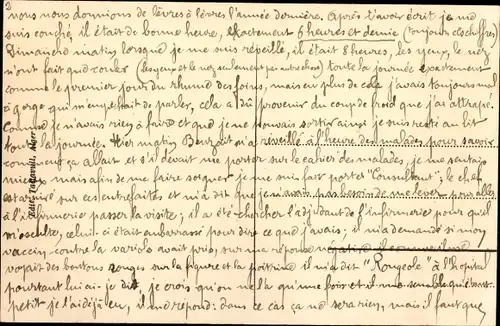 3
nous nous donnions de lèvres à lèvres l'année dernière. Après t'avoir écrit je me
suis couché, il était de bonne heure, exactement 6 heures et demie (toujours
Dimanche matin lorsque je me suis réveillé, il était 8 heures, les yeux, le nez
n'ont fait que couler (les yeux et le nez seulement pas autre chose) toute la journée exactement
comme le premier jour du rhume des foins, mais en plus de cela j'avais toujours mal
à gorge qui m'empêchait de parler, cela a dû provenir du coup de froid que j'ai attrapé.
Comme je n'avais rien à faire et que je ne pouvais sortir ainsi je suis resté au lit
toute la journée. Hier matin réveillé à l'heure des malades pour savoir
comment ça allait et s'il devait me porter sur le cahier des malades, je me sentais
mieux mais afin de me faire soigner je me suis fait porter "Consultant", le chef
est arrivé sur ces entrefaites et m'a dit que je n'avais pas besoin de me lever pour aller
à l'infirmerie passer la visite; il a été chercher l'adjudant de l'infirmerie pour qu'il
m'ausculte, celui-ci était embarrassé pour dire ce que j'avais; il m'a demandé si mon
vaccin contre la variole avait pris, sur une réponse négative il
voyait des boutons rouges sur la figure et la poitrine il m'a dit "Rougeole" à l'hôpital
pourtant lui ai-je dit, je crois qu'on ne l'a qu'une fois et il me semble qu'étant
petit je l'ai déjà eu, il me répond: dans ce cas ça ne sera rien, mais il faut que